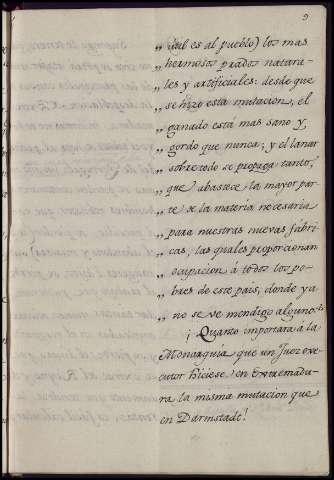 9
„ (tal es al pueblo) los mas
„ hermosos prados natura-
„ les y artificiales: desde que
„ se hizo esta mutacion, el
„ ganado está mas sano y,
„ gordo que nunca; y el lanar
„ sobre todo se propaga tanto,
„ que abastece la mayor par-
„ te de la materia necesaria
„ para nuestras nuevas fabri-
„ cas, las quales proporcionan
„ ocupacion á todos los po-
„ bres de este pais, donde ya
„ no se ve mendigo alguno.„
¡ Quanto importára á la
Monarquia que un Juez exe-
cutor hiciese en Extremadu-
ra la misma mutacion que
en Darmstadt!